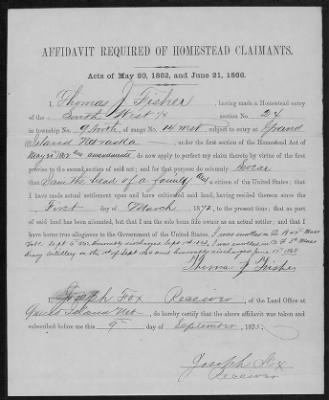 AFFIDAVIT REQUIRED OF HOMESTEAD CLAIMANTS.
Acts of May 20, 1862, and June 21, 1866.
I, Thomas J. Fisher, having made a Homestead entry
of the South West ¼ section No. 24
in township No. 9 North, of range No. 14 West subject to entry at Grand
Island Nebraska, under the first section of the Homestead Act of
May 20 1862 amendments, do now apply to perfect my claim thereto by virtue of the first
proviso to the second section of said act; and for that purpose do solemnly Swear
that I am the head of a family and a citizen of the United States; that I
have made actual settlement upon and have cultivated said land, having resided thereon since the
First day of March, 1873, to the present time; that no part
of said land has been alienated, but that I am the sole bona fide owner as an actual settler; and that I
have borne true allegiance to the Government of the United States. I was enlisted in Co.
Thomas J Fisher
I, Joseph Fox Receiver, of the Land Office at
Grand Island Neb, do hereby certify that the above affidavit was taken and
subscribed before me this 9th day of September, 1875.
Joseph Fox
Receiver